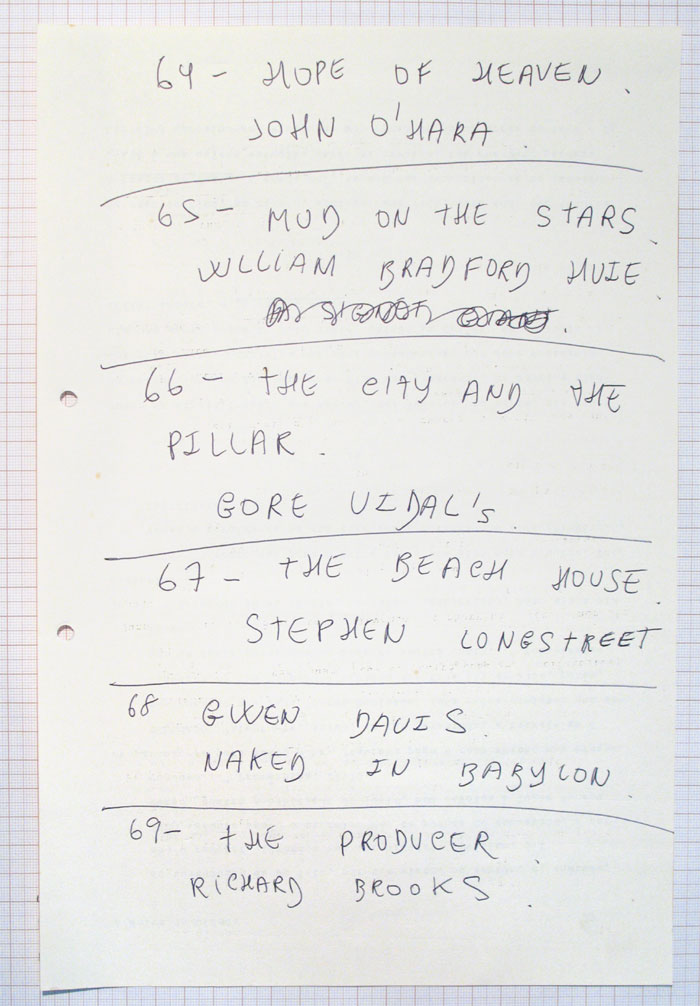 64 - HOPE OF HEAVEN.
JOHN O'HARA.
65 - MUD ON THE STARS.
WILLIAM BRADFORD HUIE.
66 - THE CITY AND THE
PILLAR.
GORE VIDAL's.
67 - THE BEACH HOUSE.
STEPHEN LONGSTREET
68 GWEN DAVIS.
NAKED IN BABYLON.
69- THE PRODUCER.
RICHARD BROOKS.